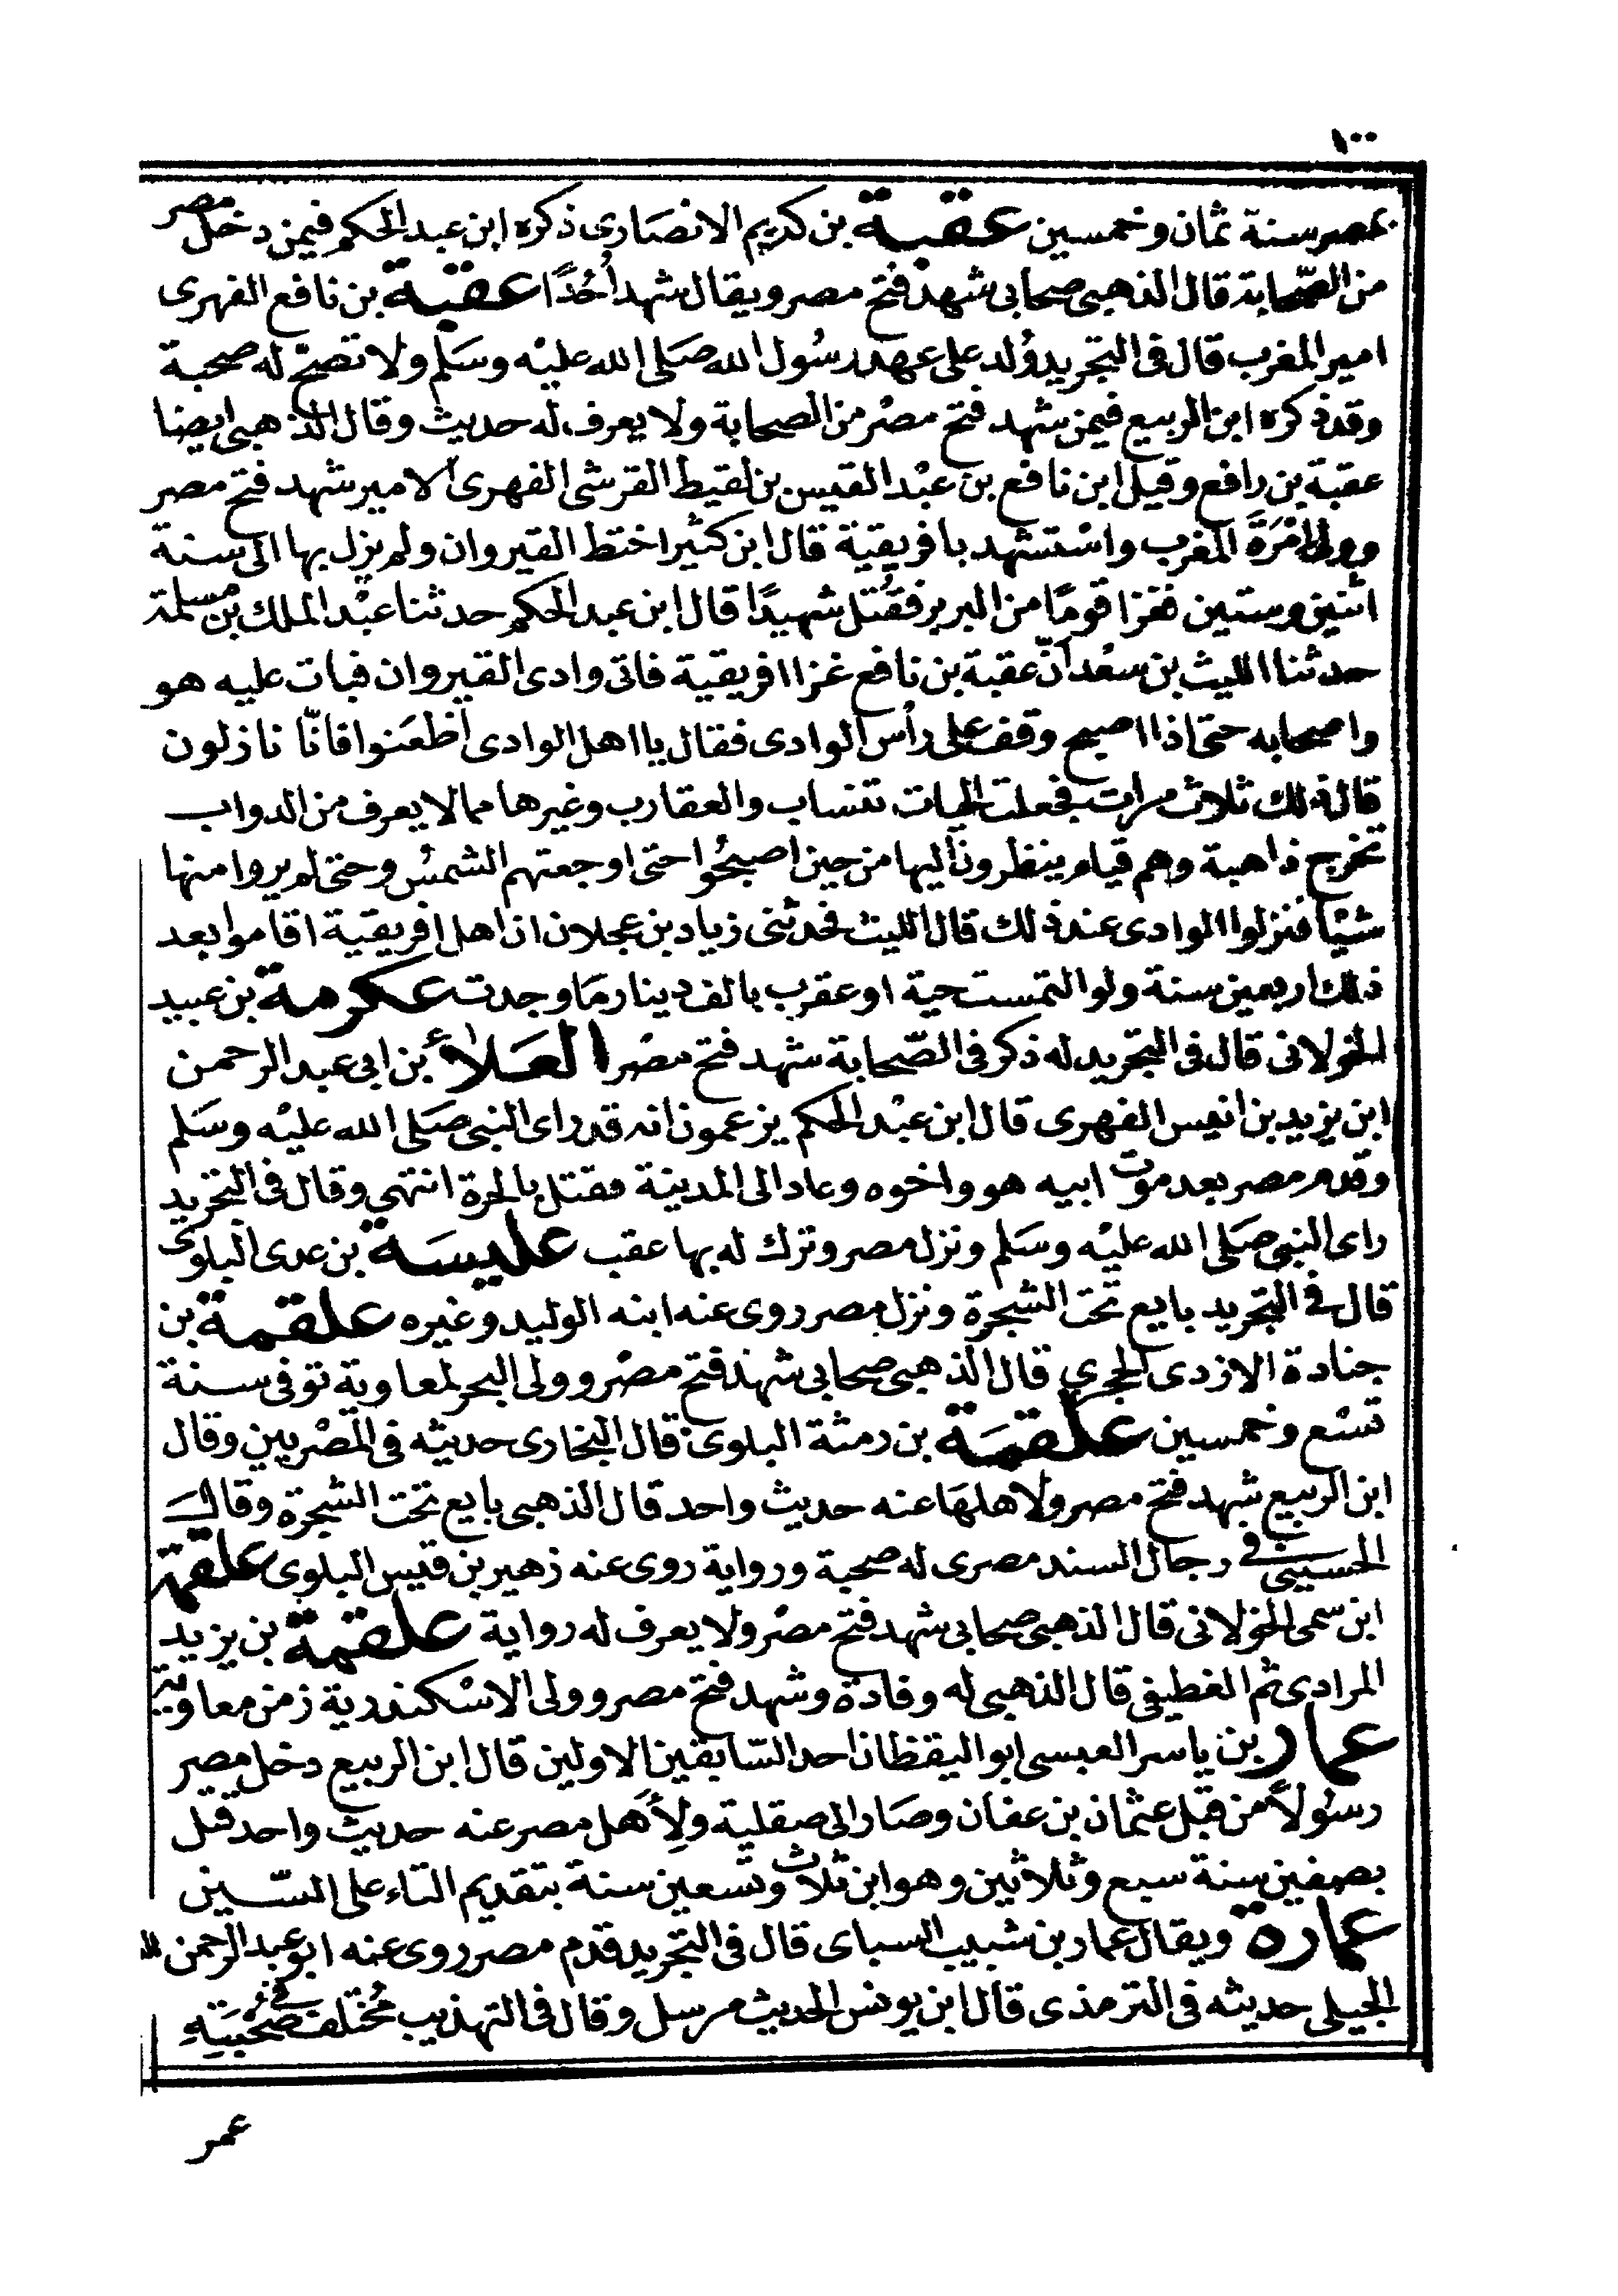 ١٠٠
بمصر سنة ثمان وخمسين عقبة بن كريم الانصارى ذكره ابن عبد الحكم فيمن دخل مصر
من الصّحابة قال الذهبى صحابى شهد فتح مصر ويقال شهد أُحُدًا عقبة بن نافع الفهرى
امير المغرب قال فى التجريد وُلد على عهد رسُول الله صَلى الله عليْه وسَلم ولا تصحّ له صحبة
وقد ذكره ابن الربيع فيمن شهد فتح مصْر من الصحابة ولا يعرف له حديث وقال الذهبى ايضا
عقبة بن رافع وقيل ابن نافع بن عبْد القيس بن لقيط القرشى الفهرى الامير شهد فتح مصر
وولى امْرَةَ المغرب واسْتشهد بافريقية قال ابن كثير اختط القيروان ولم يزل بها الى سنة
اثنين وستين فغزا قومًا من البربر فقُتل شهيدًا قال ابن عبد الحكم حدثنا عبْد الملك بن مسلمة
حدثنا الليث بن سعْد أنّ عقبة بن نافع غزا افريقية فاتى وادى القيروان فبات عليه هو
واصحابه حتى اذا اصبح وقف على رأس الوادى فقال يا اهل الوادى اظعَنوا فانّا نازلون
قال ذلك ثلاث مرات فجعلت الحيات تنساب والعقارب وغيرها مما لا يعرف من الدواب
تخرج ذاهبة وهم قيام ينظرون اليها من حين اصبحُوا حتى اوجعتهم الشمسُ وحتى لم يروا منها
شيْأ فنزلوا الوادى عند ذلك قال الليث فحدثنى زياد بن عجلان ان اهل افريقية اقاموا بعد
ذلك اربعين سنة ولو التمست حية او عقرب بالف دينار مَا وجدت عكرمة بن عبيد
الخولانى قال فى التجريد له ذكر فى الصّحابة شهد فتح مصْر العَلاء بن ابى عبد الرحمن
ابن يزيد بن انيس الفهرى قال ابن عبْد الحكم يزعمون انه قد راى النبى صَلى الله عليْه وسَلم
وقدم مصر بعد موت ابيه هو واخوه وعاد الى المدينة فقتل بالحرة انتهى وقال فى التجريد
راى النبى صَلى الله عليْه وسَلم ونزل مصر وترك له بها عقب عليسَة بن عدى البلوى
قال فى التجريد بايع تحت الشجرة ونزل مصر روى عنه ابنه الوليد وغيره علقمة بن
جنادة الازدى الحجرى قال الذهبى صحابى شهد فتح مصْر وولى البحر لمعاوية توفى سنة
تسْع وخمسين علقمَة بن رمثة البلوى قال البخارى حديثه فى المصْريين وقال
ابن الربيع شهد فتح مصر ولاهلهَا عنه حديث واحد قال الذهبى بايع تحت الشجرة وقالَ
الحسينى فى رجال السند مصرى له صحبة ورواية روى عنه زهير بن قيس البلوى علقمة
ابن سمى الخولانى قال الذهبى صحابى شهد فتح مصْر ولا يعرف له رواية علقمة بن يزيد
المرادى ثم الغطيفى قال الذهبى له وفادة وشهد فتح مصر وولى الاسْكندرية زمن معاوية
عمار بن ياسر العبسى ابو اليقظان احد السّابقين الاولين قال ابن الربيع دخل مصر
رسُولاً من قبل عثمان بن عفان وصَار الى صقلية ولِأَهل مصر عنه حديث واحد قتل
بصفين سنة سبع وثلاثين وهو ابن ثلاث وتسعين سنة بتقديم التاء على السّين
عمارة ويقال عمار بن شبيب السباى قال فى التجريد قدم مصر روى عنه ابو عبد الرحمن
الجبلى حديثه فى الترمذى قال ابن يونس الحديث مرسل وقال فى التهذيب مُختلف فى صُحْبَتِهِ
عمر